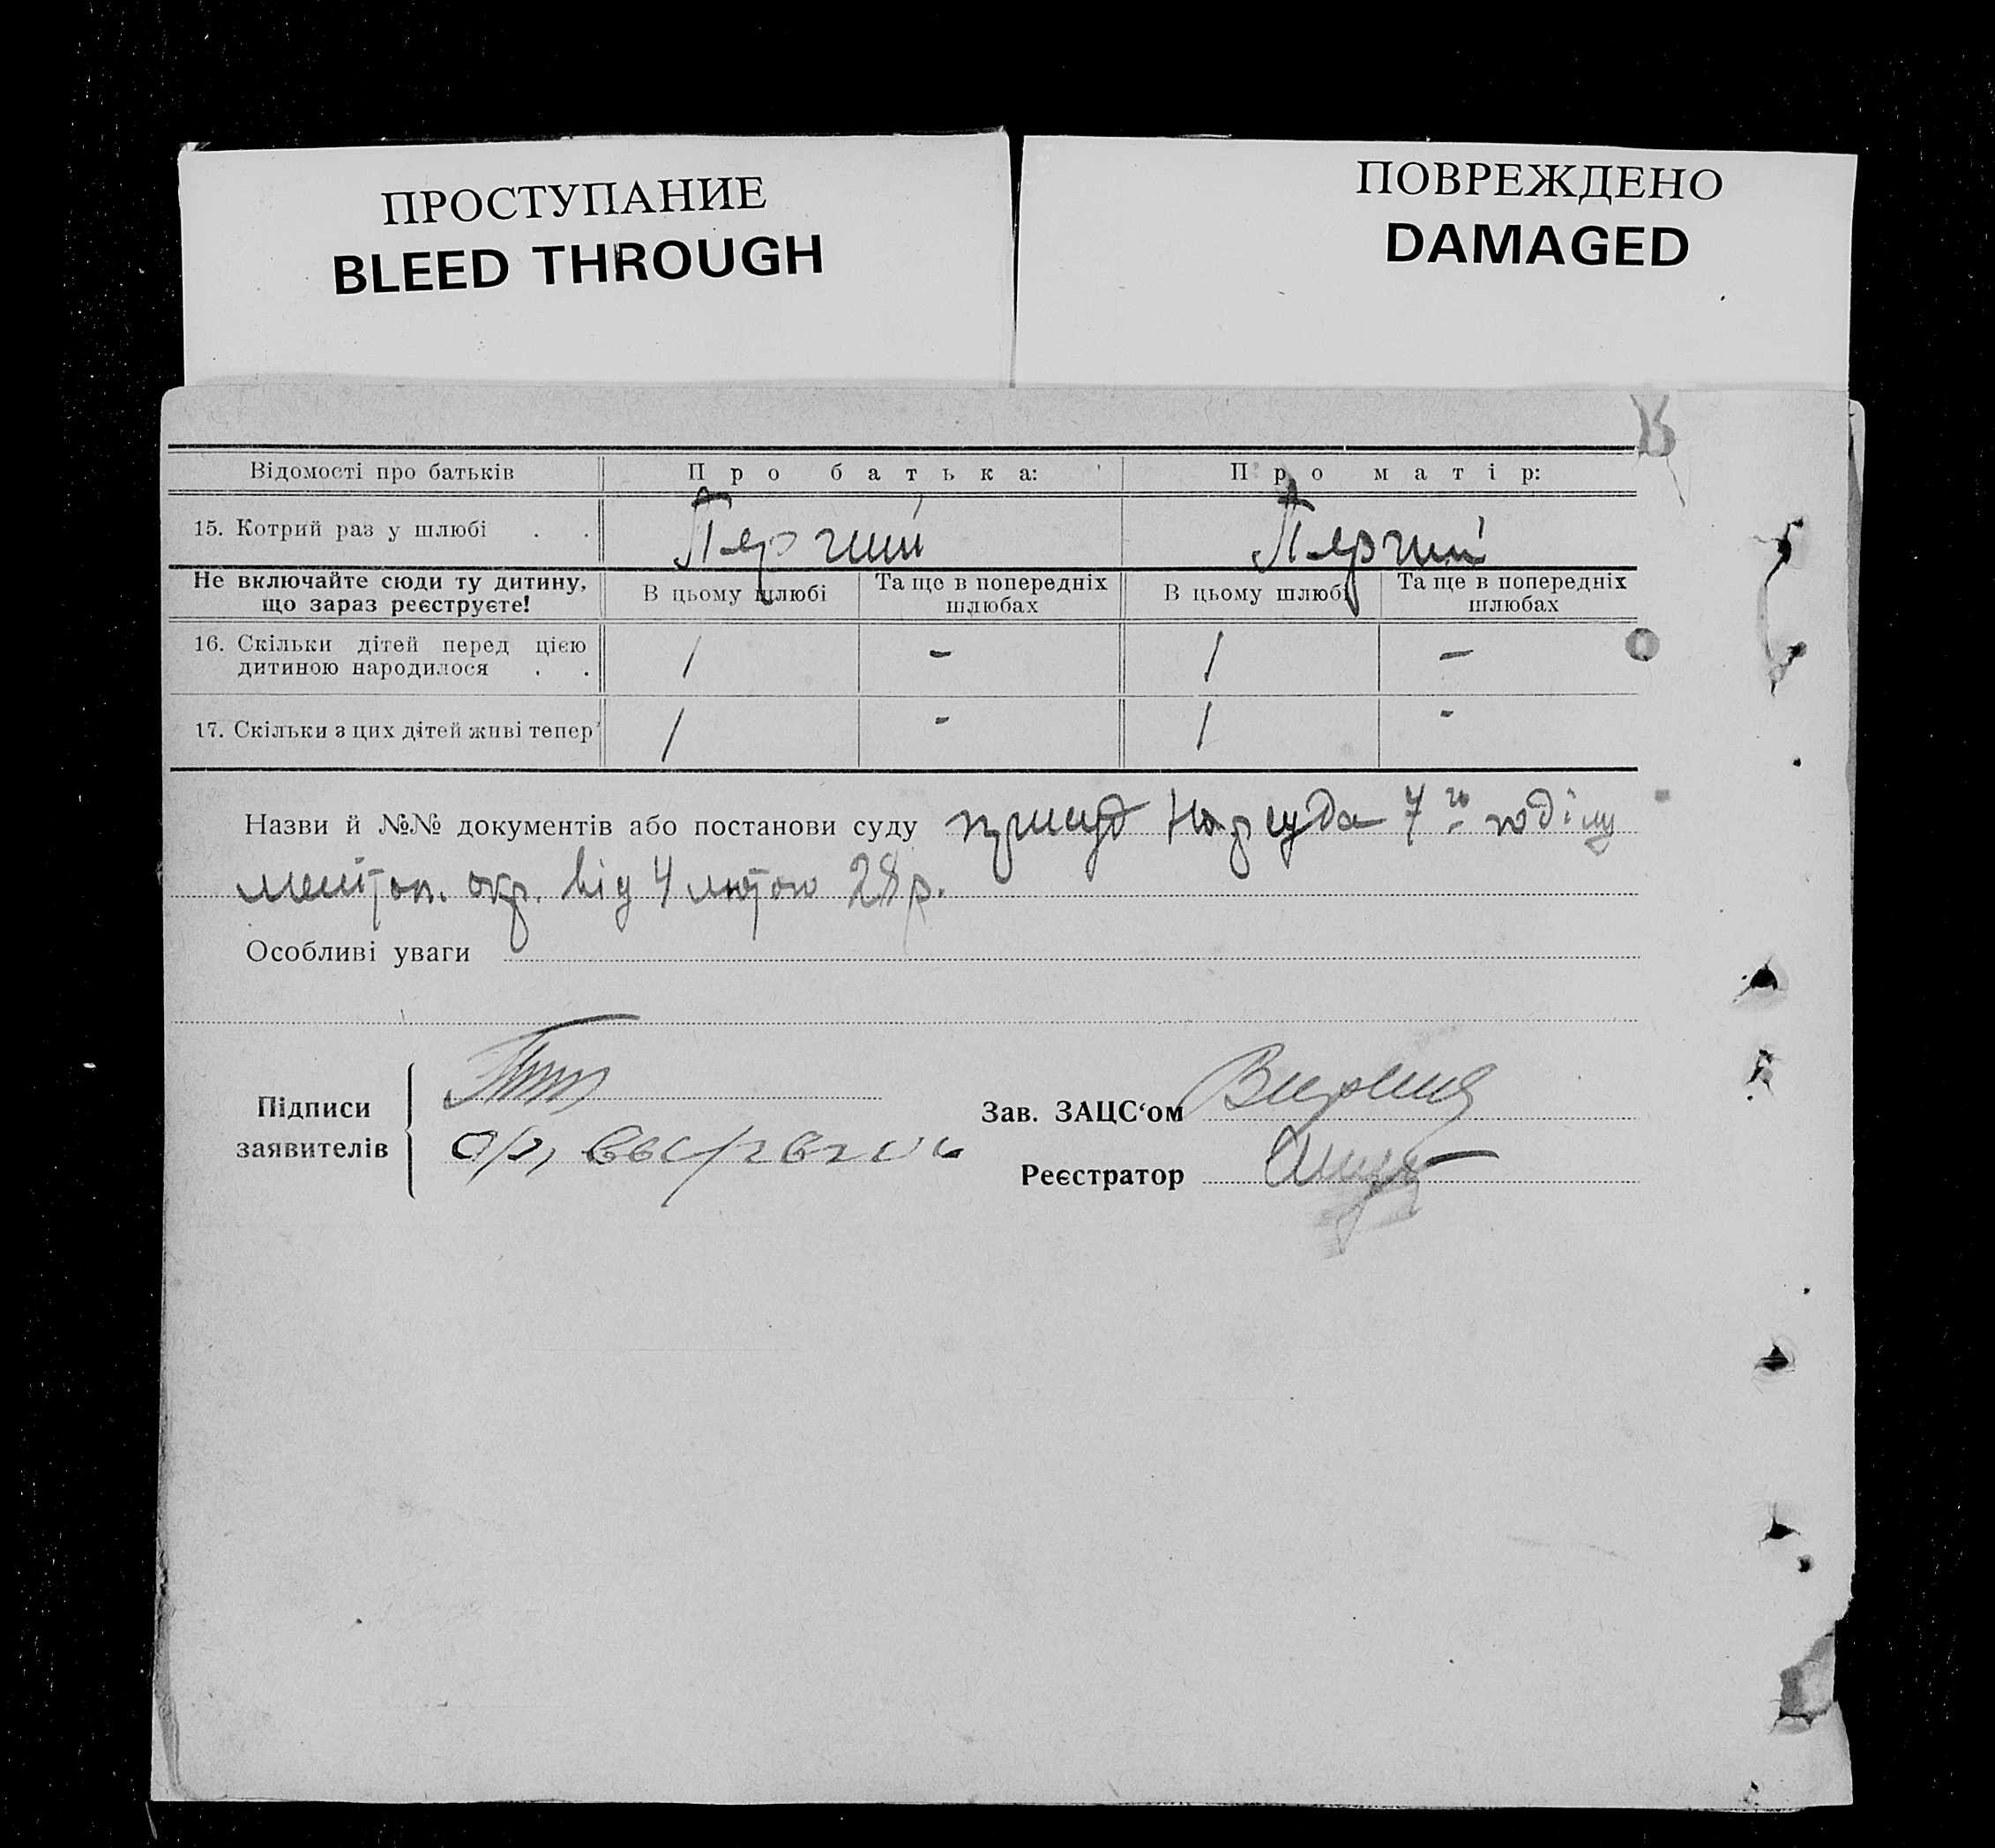 ПРОСТУПАНИЕ
BLEED THROUGH
ПОВРЕЖДЕНО
DAMAGED
Відомості про батьків Про батька: Про матір:
15. Котрий раз у шлюбі . . Перший Перший
Не включайте сюди ту дитину, що зараз реєструєте! В цьому шлюбі Та ще в попередніх шлюбах В цьому шлюбі Та ще в попередніх шлюбах
16. Скільки дітей перед цією дитиною народилося . . 1 - 1 -
17. Скільки з цих дітей живі тепер 1 - 1 -
Назви й №№ документів або постанови суду присуд Нарсуда 7го поділу
меліtоп. окр. від 4 лютого 28 р.
Особливі уваги
Підписи заявителів
Зав. ЗАЦС‘ом
Реєстратор